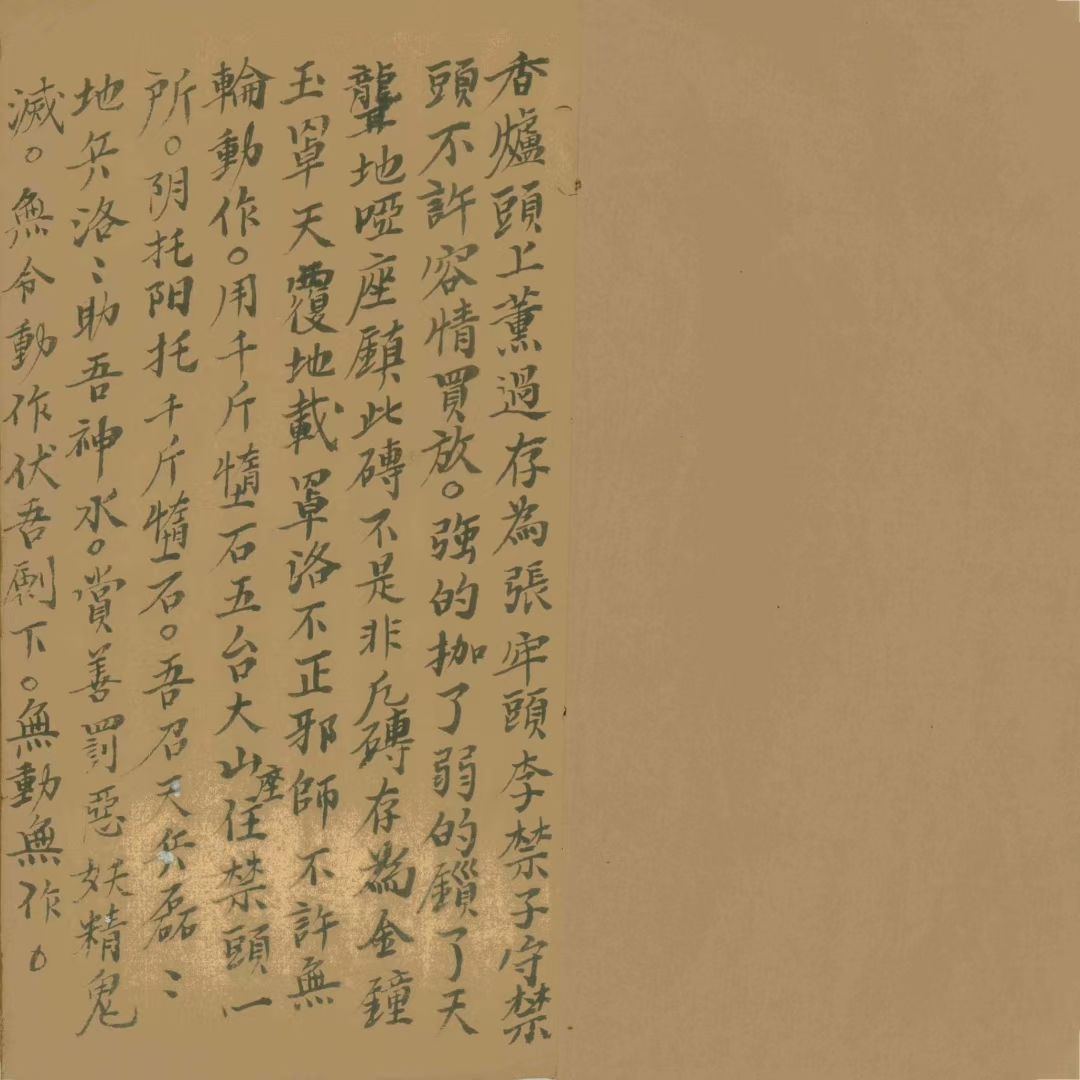 香爐頭上薰過存為張牢頭李禁子守禁
頭不許容情買放。強的枷了弱的鎖了天
聾地啞座鎮此磚不是非凡磚存為金鐘
玉罩天覆地載罩洛不正邪師不許無
輪動作。用千斤墮石五台大山座住禁頭一
所。阴托阳托千斤墮石。吾召天兵磊〻
地兵洛〻助吾神水。賞善罰惡妖精鬼
滅。無令動作伏吾劄下。無動無作。